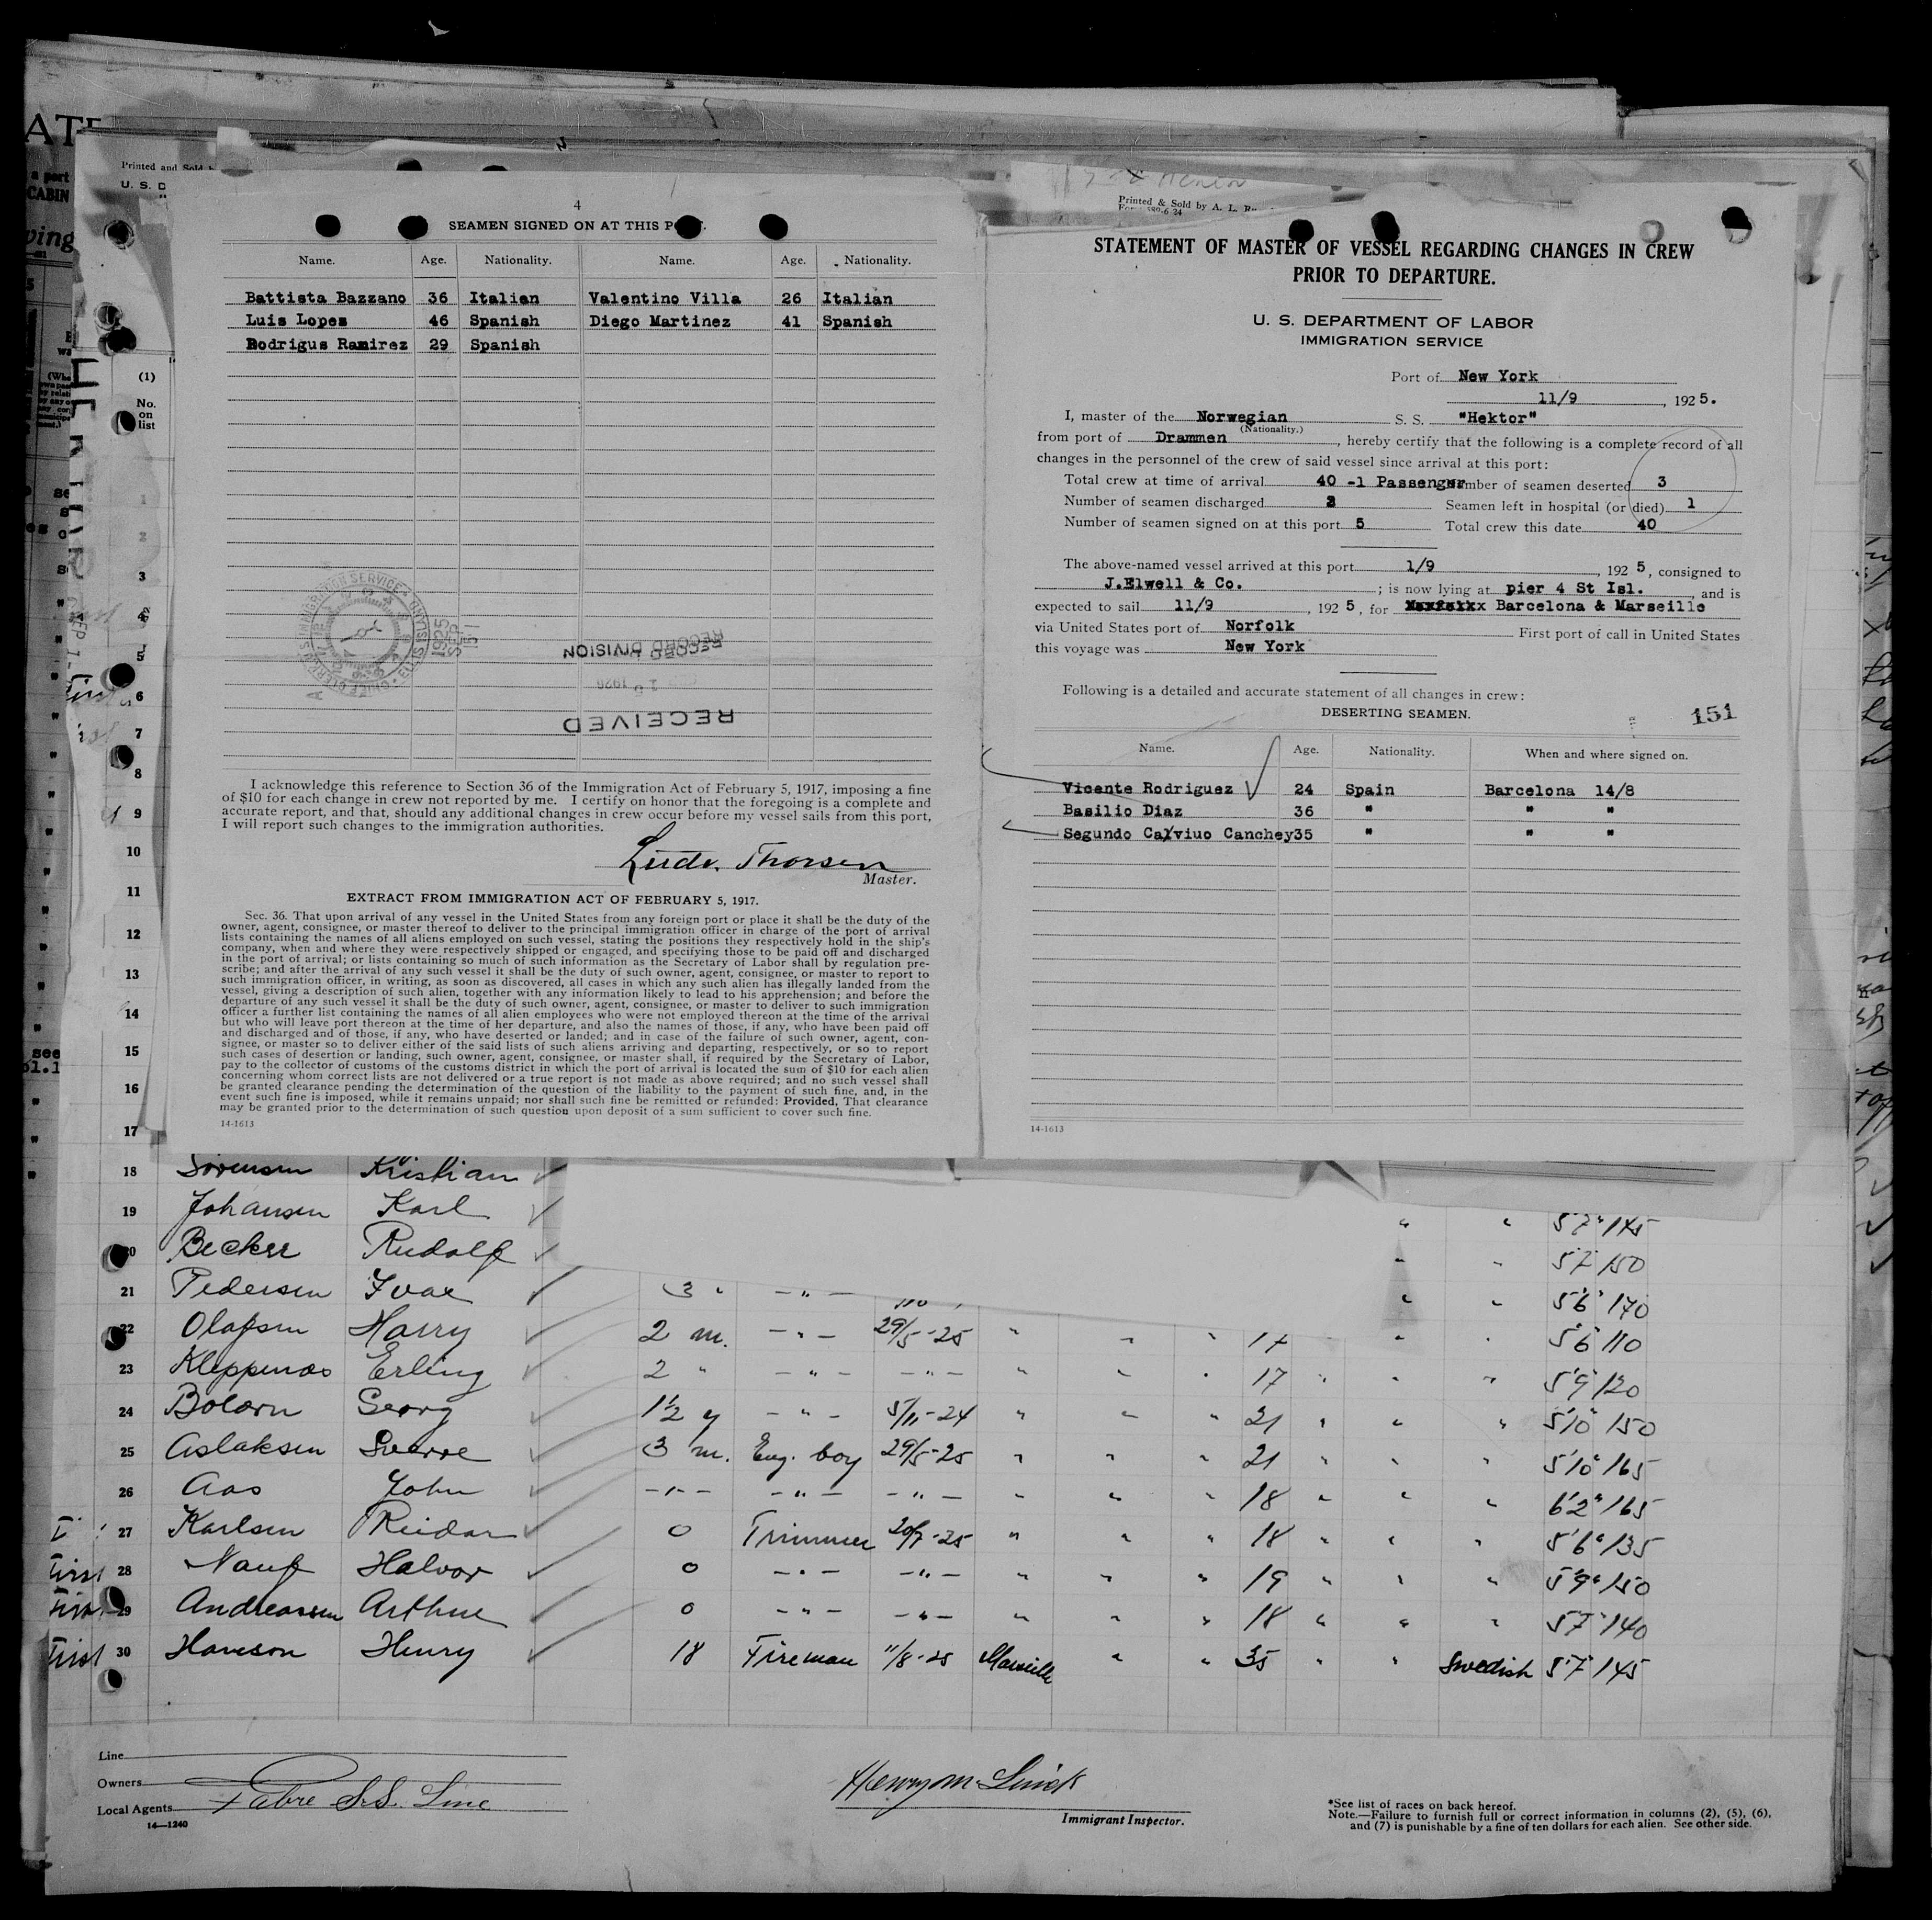 4
SEAMEN SIGNED ON AT THIS
Name. Age. Nationality. Name. Age. Nationality.
Battista Bazzano 36 Italian Valentino Villa 26 Italian
Luis Lopes 46 Spanish Diego Martinez 41 Spanish
Rodrigus Ramirez 29 Spanish
RECORD DIVISION
RECEIVED
I acknowledge this reference to Section 36 of the Immigration Act of February 5, 1917, imposing a fine
of $10 for each change in crew not reported by me. I certify on honor that the foregoing is a complete and
accurate report, and that, should any additional changes in crew occur before my vessel sails from this port,
I will report such changes to the immigration authorities.
Ludv. Thorsen
Master.
EXTRACT FROM IMMIGRATION ACT OF FEBRUARY 5, 1917.
Sec. 36. That upon arrival of any vessel in the United States from any foreign port or place it shall be the duty of the
owner, agent, consignee, or master thereof to deliver to the principal immigration officer in charge of the port of arrival
lists containing the names of all aliens employed on such vessel, stating the positions they respectively hold in the ship's
company, when and where they were respectively shipped or engaged, and specifying those to be paid off and discharged
in the port of arrival; or lists containing so much of such information as the Secretary of Labor shall by regulation pre-
scribe; and after the arrival of any such vessel it shall be the duty of such owner, agent, consignee, or master to report to
such immigration officer, in writing, as soon as discovered, all cases in which any such alien has illegally landed from the
vessel, giving a description of such alien, together with any information likely to lead to his apprehension; and before the
departure of any such vessel it shall be the duty of such owner, agent, consignee, or master to deliver to such immigration
officer a further list containing the names of all alien employees who were not employed thereon at the time of the arrival
but who will leave port thereon at the time of her departure, and also the names of those, if any, who have been paid off
and discharged and of those, if any, who have deserted or landed; and in case of the failure of such owner, agent, con-
signee, or master so to deliver either of the said lists of such aliens arriving and departing, respectively, or so to report
such cases of desertion or landing, such owner, agent, consignee, or master shall, if required by the Secretary of Labor,
pay to the collector of customs of the customs district in which the port of arrival is located the sum of $10 for each alien
concerning whom correct lists are not delivered or a true report is not made as above required; and no such vessel shall
be granted clearance pending the determination of the question of the liability to the payment of such fine, and, in the
event such fine is imposed, while it remains unpaid; nor shall such fine be remitted or refunded: Provided, That clearance
may be granted prior to the determination of such question upon deposit of a sum sufficient to cover such fine.
14-1613
Printed & Sold by A. L.
STATEMENT OF MASTER OF VESSEL REGARDING CHANGES IN CREW
PRIOR TO DEPARTURE.
U. S. DEPARTMENT OF LABOR
IMMIGRATION SERVICE
Port of New York
11/9, 1925.
I, master of the Norwegian S. S. "Hektor"
(Nationality.)
from port of Drammen, hereby certify that the following is a complete record of all
changes in the personnel of the crew of said vessel since arrival at this port:
Total crew at time of arrival 40 -1 Passenger Number of seamen deserted 3
Number of seamen discharged Seamen left in hospital (or died) 1
Number of seamen signed on at this port 5 Total crew this date 40
The above-named vessel arrived at this port 1/9, 1925, consigned to
J.Elwell & Co.; is now lying at pier 4 St Isl. and is
expected to sail 11/9, 1925, for Barcelona & Marseille
via United States port of Norfolk First port of call in United States
this voyage was New York
Following is a detailed and accurate statement of all changes in crew:
DESERTING SEAMEN. 151
Name. Age. Nationality. When and where signed on.
Vicente Rodriguez 24 Spain Barcelona 14/8
Basilio Diaz 36 " " "
Segundo Calviuo Canchey 35 " " "
14-1613
Printed and Sold
(1)
No.
on
list
1
2
3
4
5
6
7
8
9
10
11
12
13
14
15
16
17
18 Sörensen Kristian
19 Johansen Karl " " 5'7" 145
20 Becker Rudolf " " 5'7 150
21 Pedersen Ivar 3 " — " — " " 5'6" 170
22 Olafsen Harry 2 m. — " — 29/5-25 " " " 17 " " 5'6" 110
23 Kleppenas Erling 2 " — " — — " — " " " 17 " " " 5'9" 120
24 Georg 1½ y — " — 5/11-24 " " " 21 " " " 5'10" 150
25 Aslaksen Sverre 3 m. Eng. boy 29/5-25 " " " 21 " " " 5'10" 165
26 Aas John — " — — " — — " — " " " 18 " " " 6'2" 165
27 Karlsen Reidar 0 Trimmer 20/7-25 " " " 18 " " " 5'6" 135
First 28 Nauf Halvor 0 — " — — " — " " " 19 " " " 5'9" 150
First 29 Andreassen Arthur 0 — " — — " — " " 18 " " " 5'7" 140
First 30 Hanson Henry 18 Fireman 11/8-25 Marseille " " 35 " " Swedish 5'7" 145
Line
Owners
Local Agents Fabre S.S. Line
14—1240
Henry M. Linick
Immigrant Inspector.
*See list of races on back hereof.
Note.—Failure to furnish full or correct information in columns (2), (5), (6),
and (7) is punishable by a fine of ten dollars for each alien. See other side.